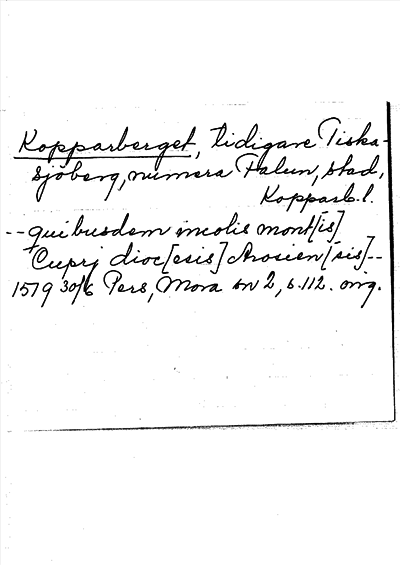 Kopparberget, tidigare Tiska-
sjöberg, numera Falun, stad,
Kopparb.l.
-- quibusdem incolis mont[is]
Cuprj dioc[esis] Arosien[sis]--
1519 30/6 Pers, Mora sn 2, s.112. orig.